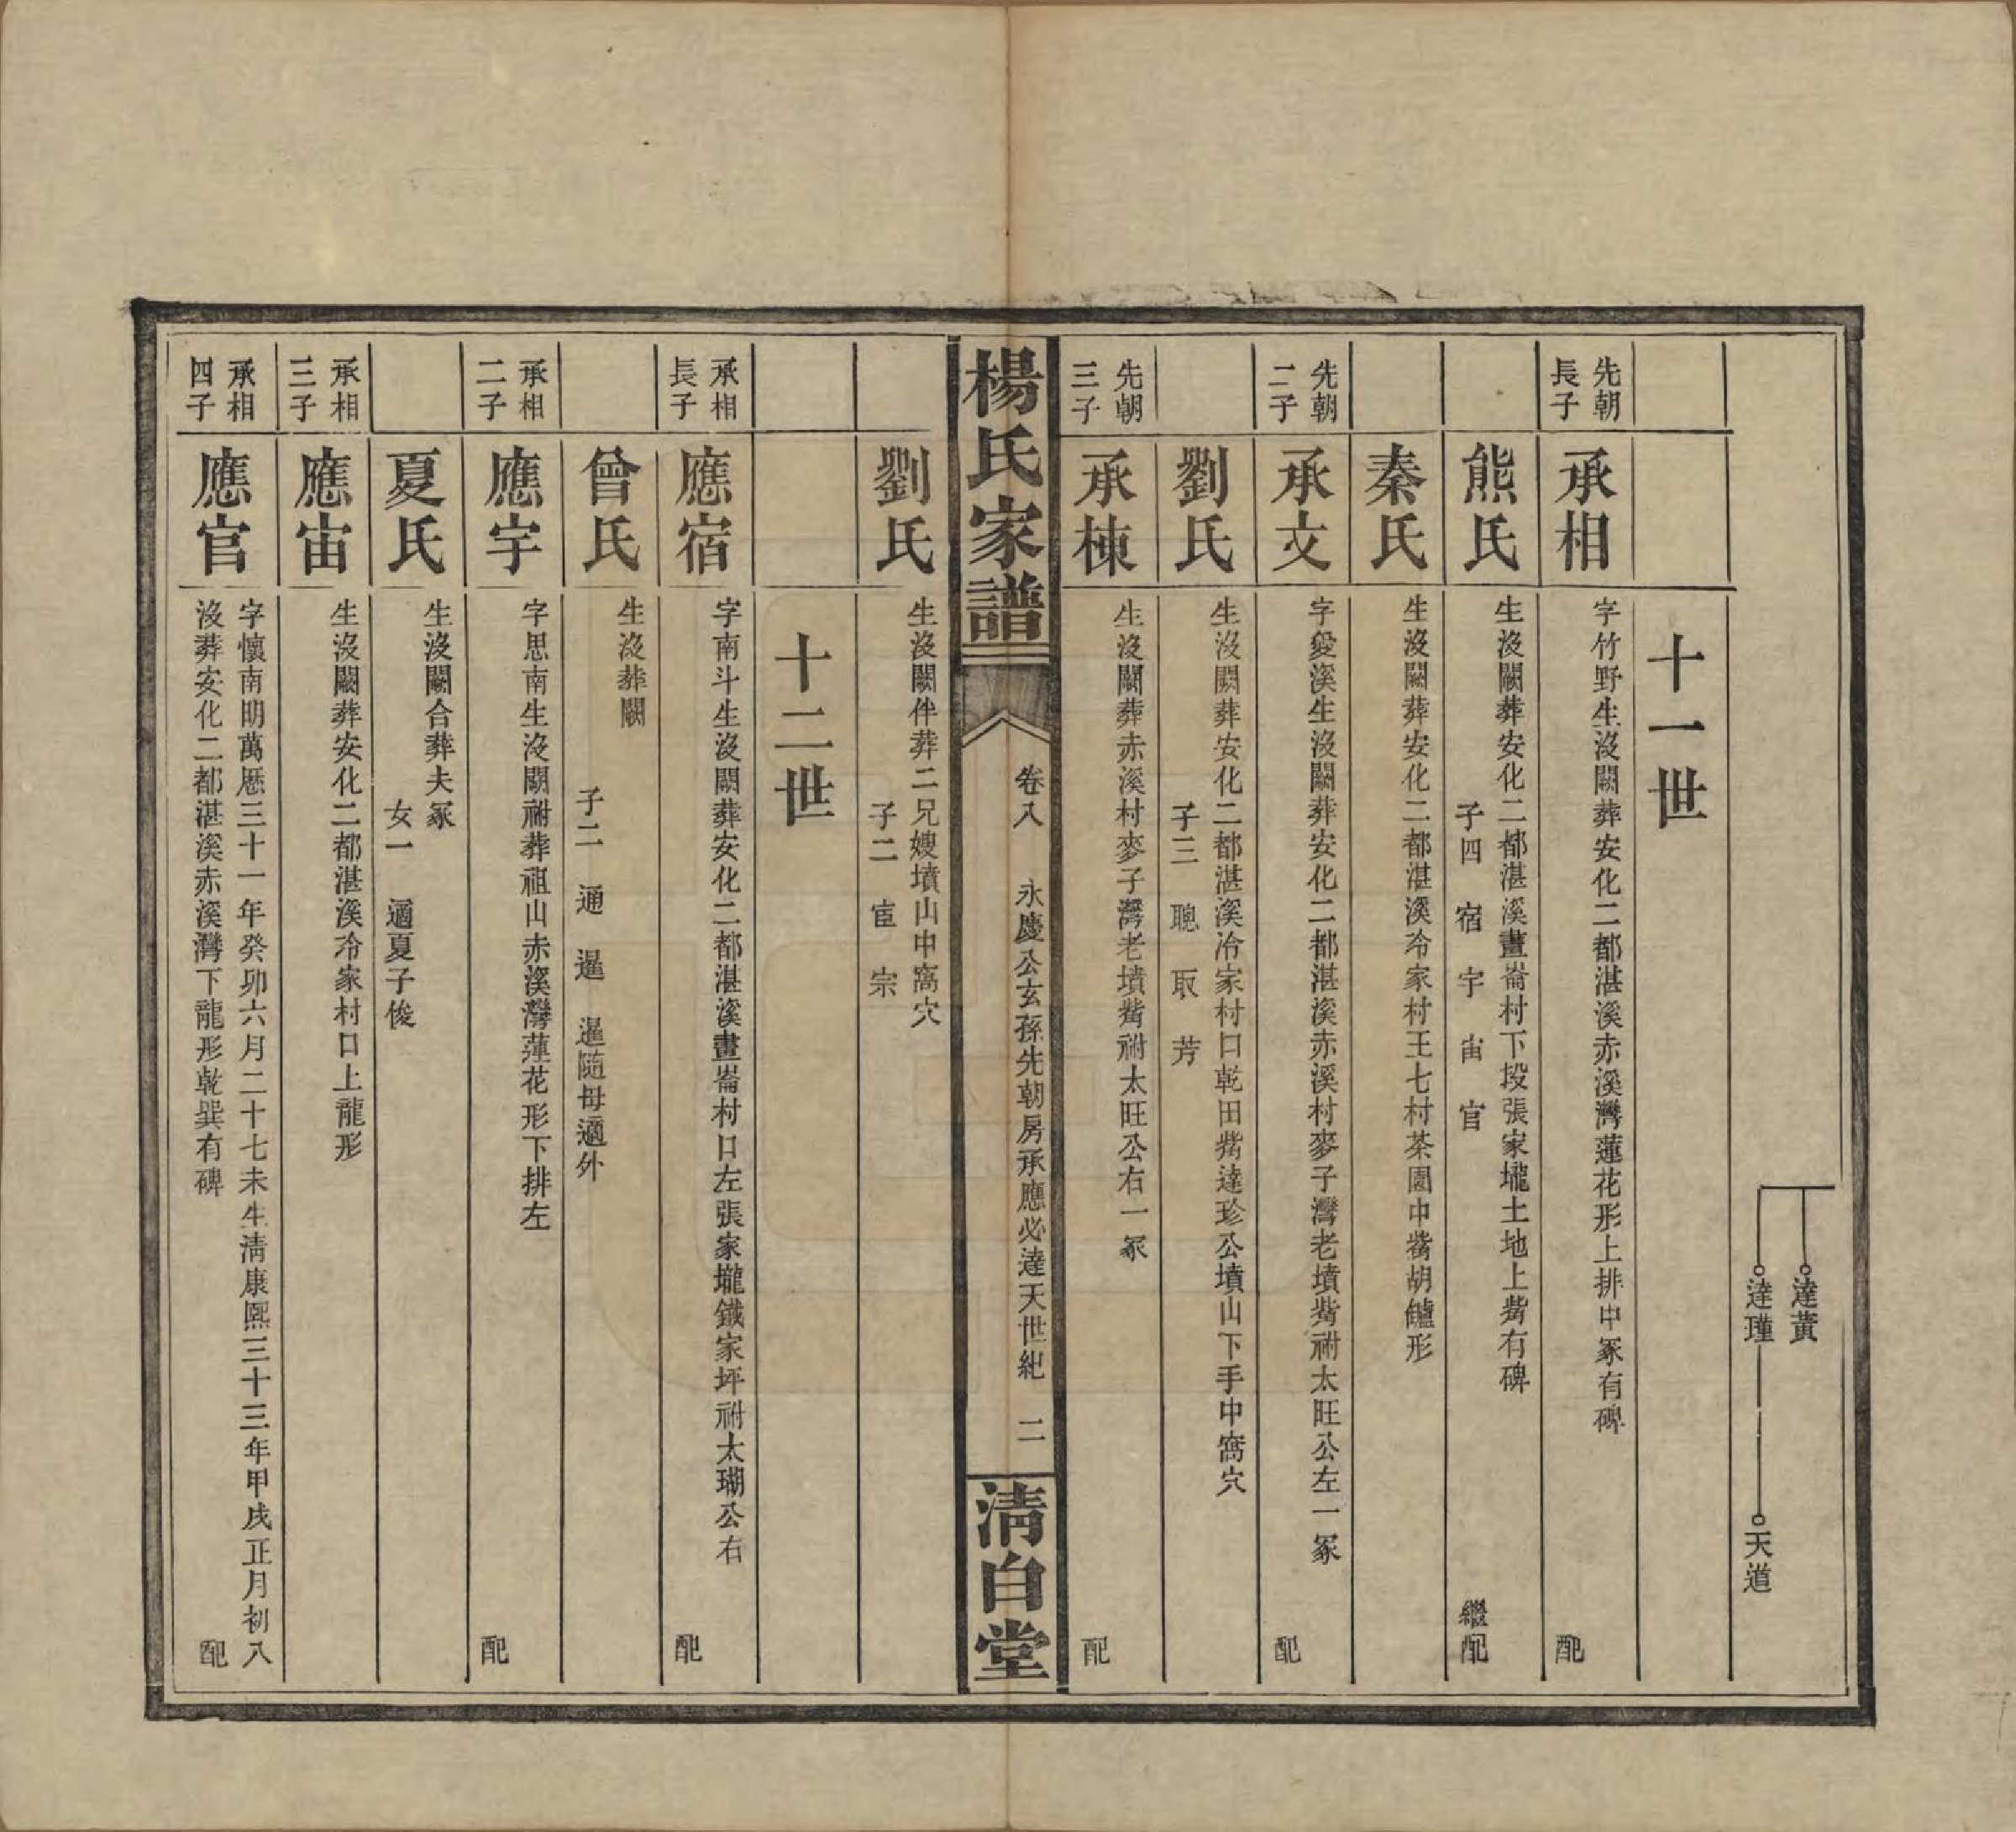 達黃
達瑾　天道
十一世
先朝
長子
承相
字竹野生沒闕葬安化二都湛溪赤溪灣蓮花形上排中冢有碑
配
熊氏
生沒闕葬安化二都湛溪畫崙村下投張家壠土地上觜有碑
子四　宿　宇　宙　官
繼配
秦氏
生沒闕葬安化二都湛溪冷家村王七村茶園中觜胡鱸形
先朝
二子
承文
字愛溪生沒闕葬安化二都湛溪赤溪村麥子灣老墳觜祔太旺公左一冢
配
劉氏
生沒闕葬安化二都湛溪冷家村口乾田觜達珍公墳山下手中窩穴
子三　聰　取　芳
先朝
三子
承棟
生沒闕葬赤溪村麥子灣老墳觜祔太旺公右一冢
配
楊氏家譜
卷八　永慶公玄孫先朝房承應必達天世紀　二
清白堂
劉氏
生沒闕伴葬二兄嫂墳山中窩穴
子二　宦　宗
十二世
承相
長子
應宿
字南斗生沒闕葬安化二都湛溪畫崙村口左張家壠鐵家坪祔太瑚公右
配
曾氏
生沒葬闕
子二　通　暹　暹隨母適外
承相
二子
應宇
字思南生沒闕祔葬祖山赤溪灣蓮花形下排左
配
夏氏
生沒闕合葬夫冢
女一　適夏子俊
承相
三子
應宙
生沒闕葬安化二都湛溪冷家村口上龍形
承相
四子
應官
字懷南明萬曆三十一年癸卯六月二十七未生清康熙三十三年甲戌正月初八
沒葬安化二都湛溪赤溪灣下龍形乾巽有碑
配